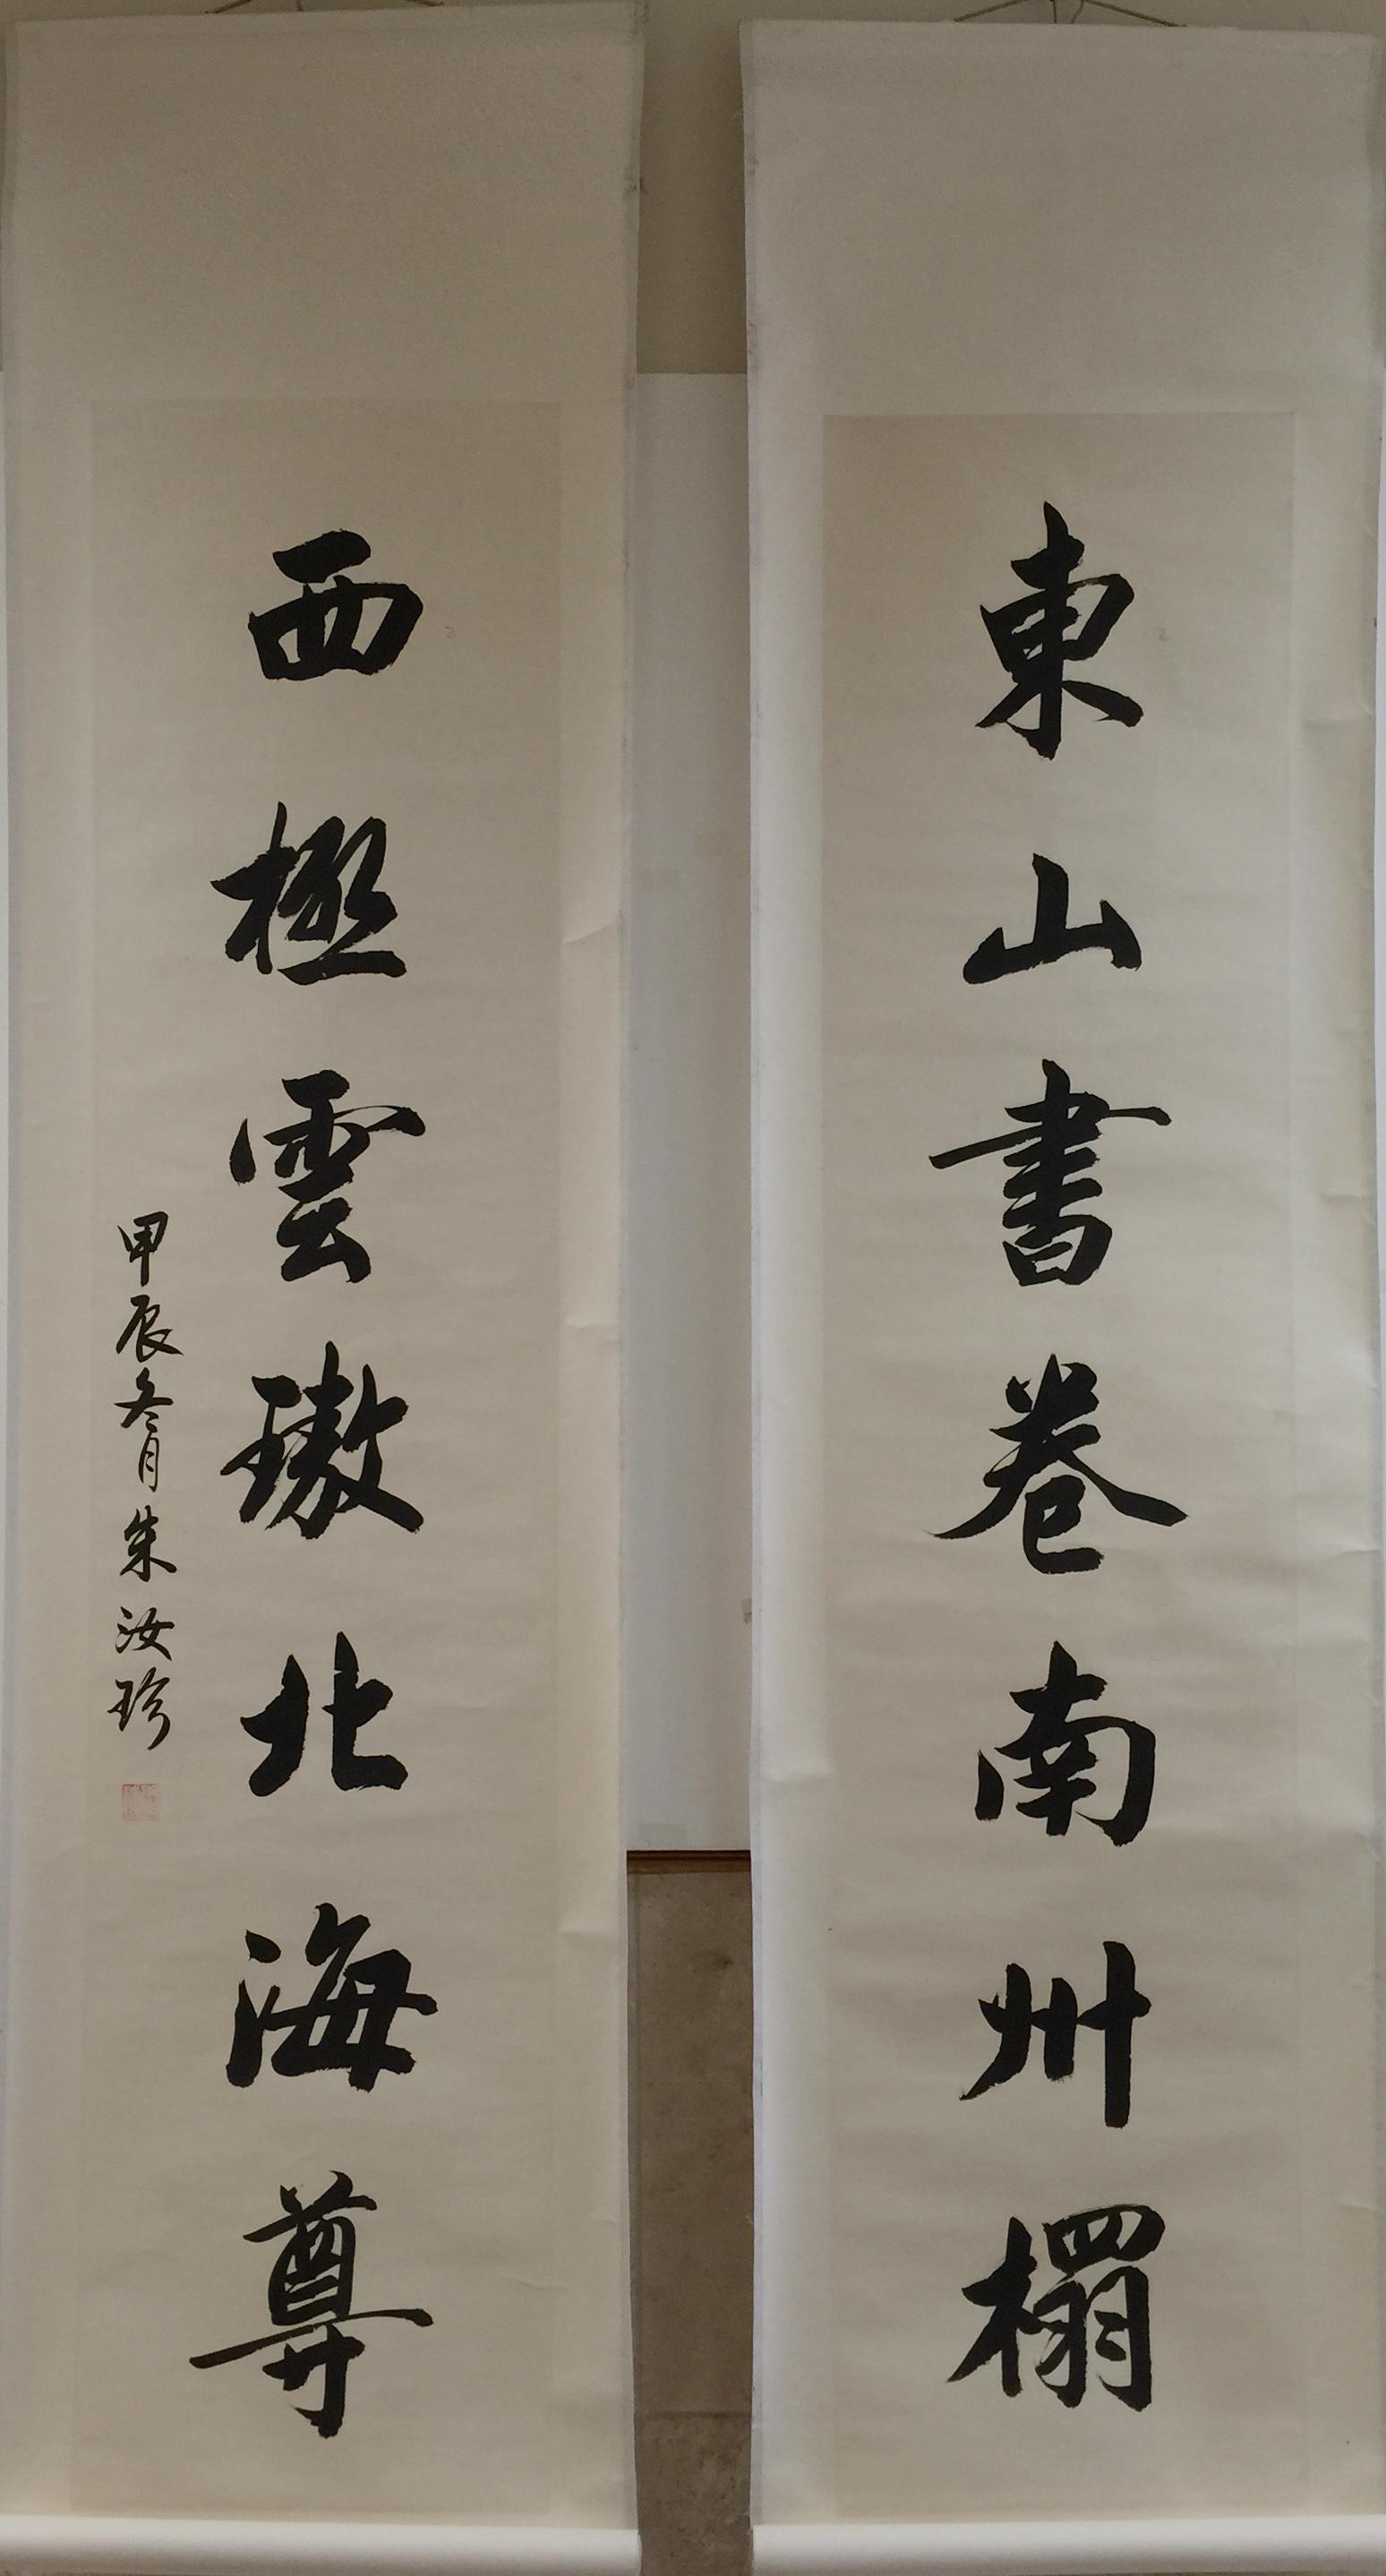 東山書卷南州榻
西極雲璈北海尊
甲辰冬月朱汝珍